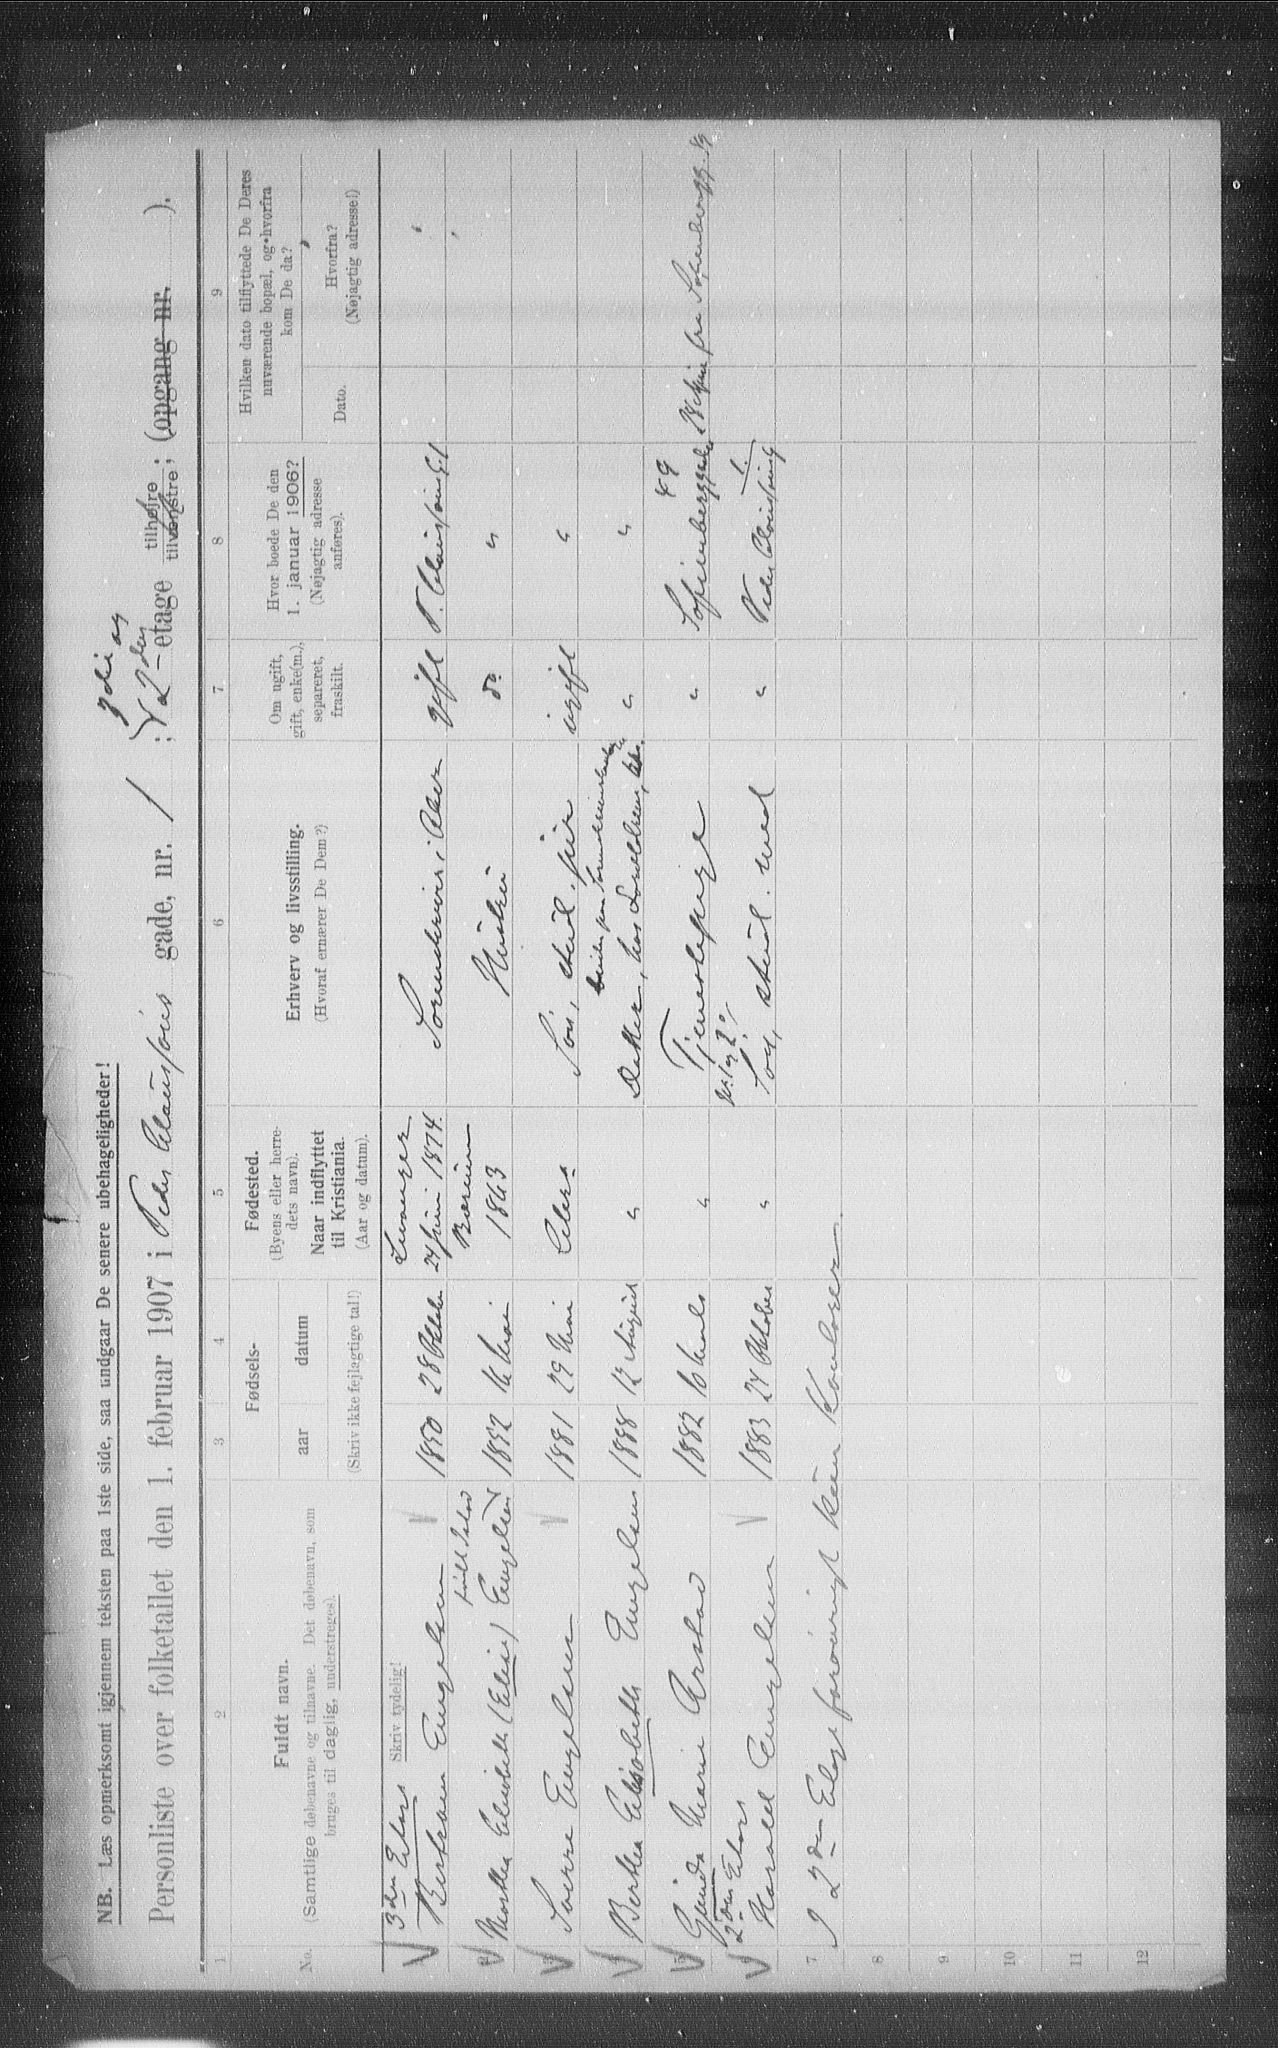 NB. Læs opmerksomt igjennem teksten paa 1ste side, saa undgaar De senere ubehageligheder!
Personliste over folketallet den 1. februar 1907 i Peder Claussøns gade, nr. 1; 3die og 2den etage tilhøjre tilvenstre; (opgang nr. ).
1 2 3 4 5 6 7 8 9
No.
Fuldt navn.
(Samtlige døbenavne og tilnavne. Det døbenavn, som
bruges til daglig, understreges).
Fødsels-
aar datum
(Skriv ikke fejlagtige tal!)
Fødested.
(Byens eller herre-
dets navn).
Naar indflyttet
til Kristiania.
(Aar og datum).
Erhverv og livsstilling.
(Hvoraf ernærer De Dem?)
Om ugift,
gift, enke(m.),
separeret,
fraskilt.
Hvor boede De den
1. januar 1906?
(Nøjagtig adresse
anføres).
Hvilken dato tilflyttede De Deres
nuværende bopæl, og hvorfra
kom De da?
Dato.
Hvorfra?
(Nøjagtig adresse!)
Skriv tydelig!
3den Etage
Engelsen 1850 28 Oktober 24 Juni 1874. Aker gift P. Claussøns gt
født
Elisabeth (Elise) Engelsen 1852 16 Mai Bærum 1863 Hustru do "
Sverre Engelsen 1881 29 Mai Søn, stud. jur ugift "
Berthea Elisabeth Engelsen 1888 12 August " Datter, hos " "
Marie 1882 16 " Tjenestepige " 49
2den Etage
Harald Engelsen 1883 24 Oktober " Søn, stud. med " Peder Claussøns g 1.
7 I 2den Etage forøvrigt kun Kontorer.
8
9
10
11
12